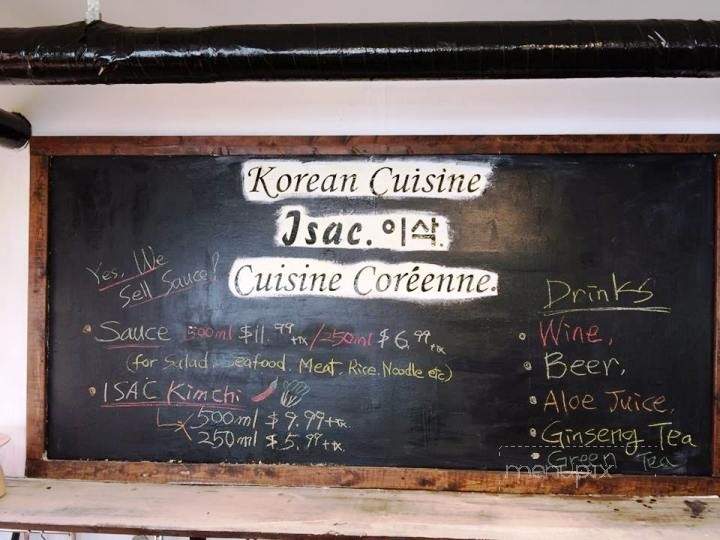 Korean Cuisine
Isac. 이삭.
Cuisine Coréenne.
Yes, We
Sell Sauce!
• Sauce 500ml $11.99+tx / 250ml $6.99+tx
(for Salad, Seafood, Meat, Rice, Noodle etc)
• ISAC Kimchi
500ml $9.99+tx.
250ml $5.99+tx.
Drinks
• Wine,
• Beer,
• Aloe Juice,
• Ginseng Tea
• Green Tea
menupix